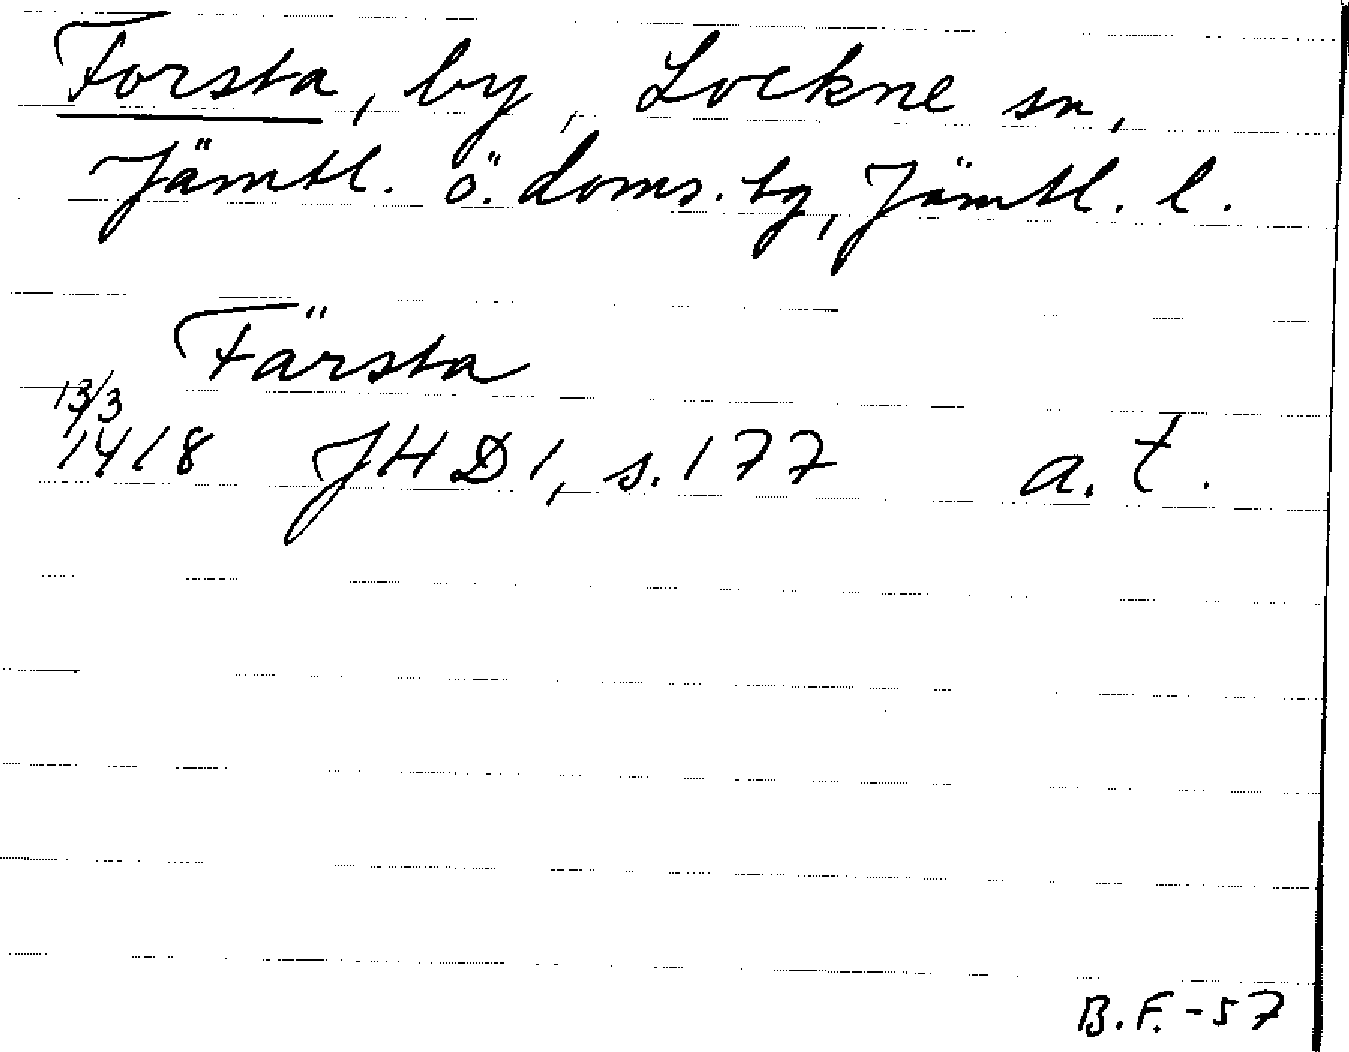 Forsta, by, Lockne sn,
Jämtl. ö. doms. tg, Jämtl. l.
Färsta
13/3
1418 JHD 1, s. 177 a. t.
B.F.-57